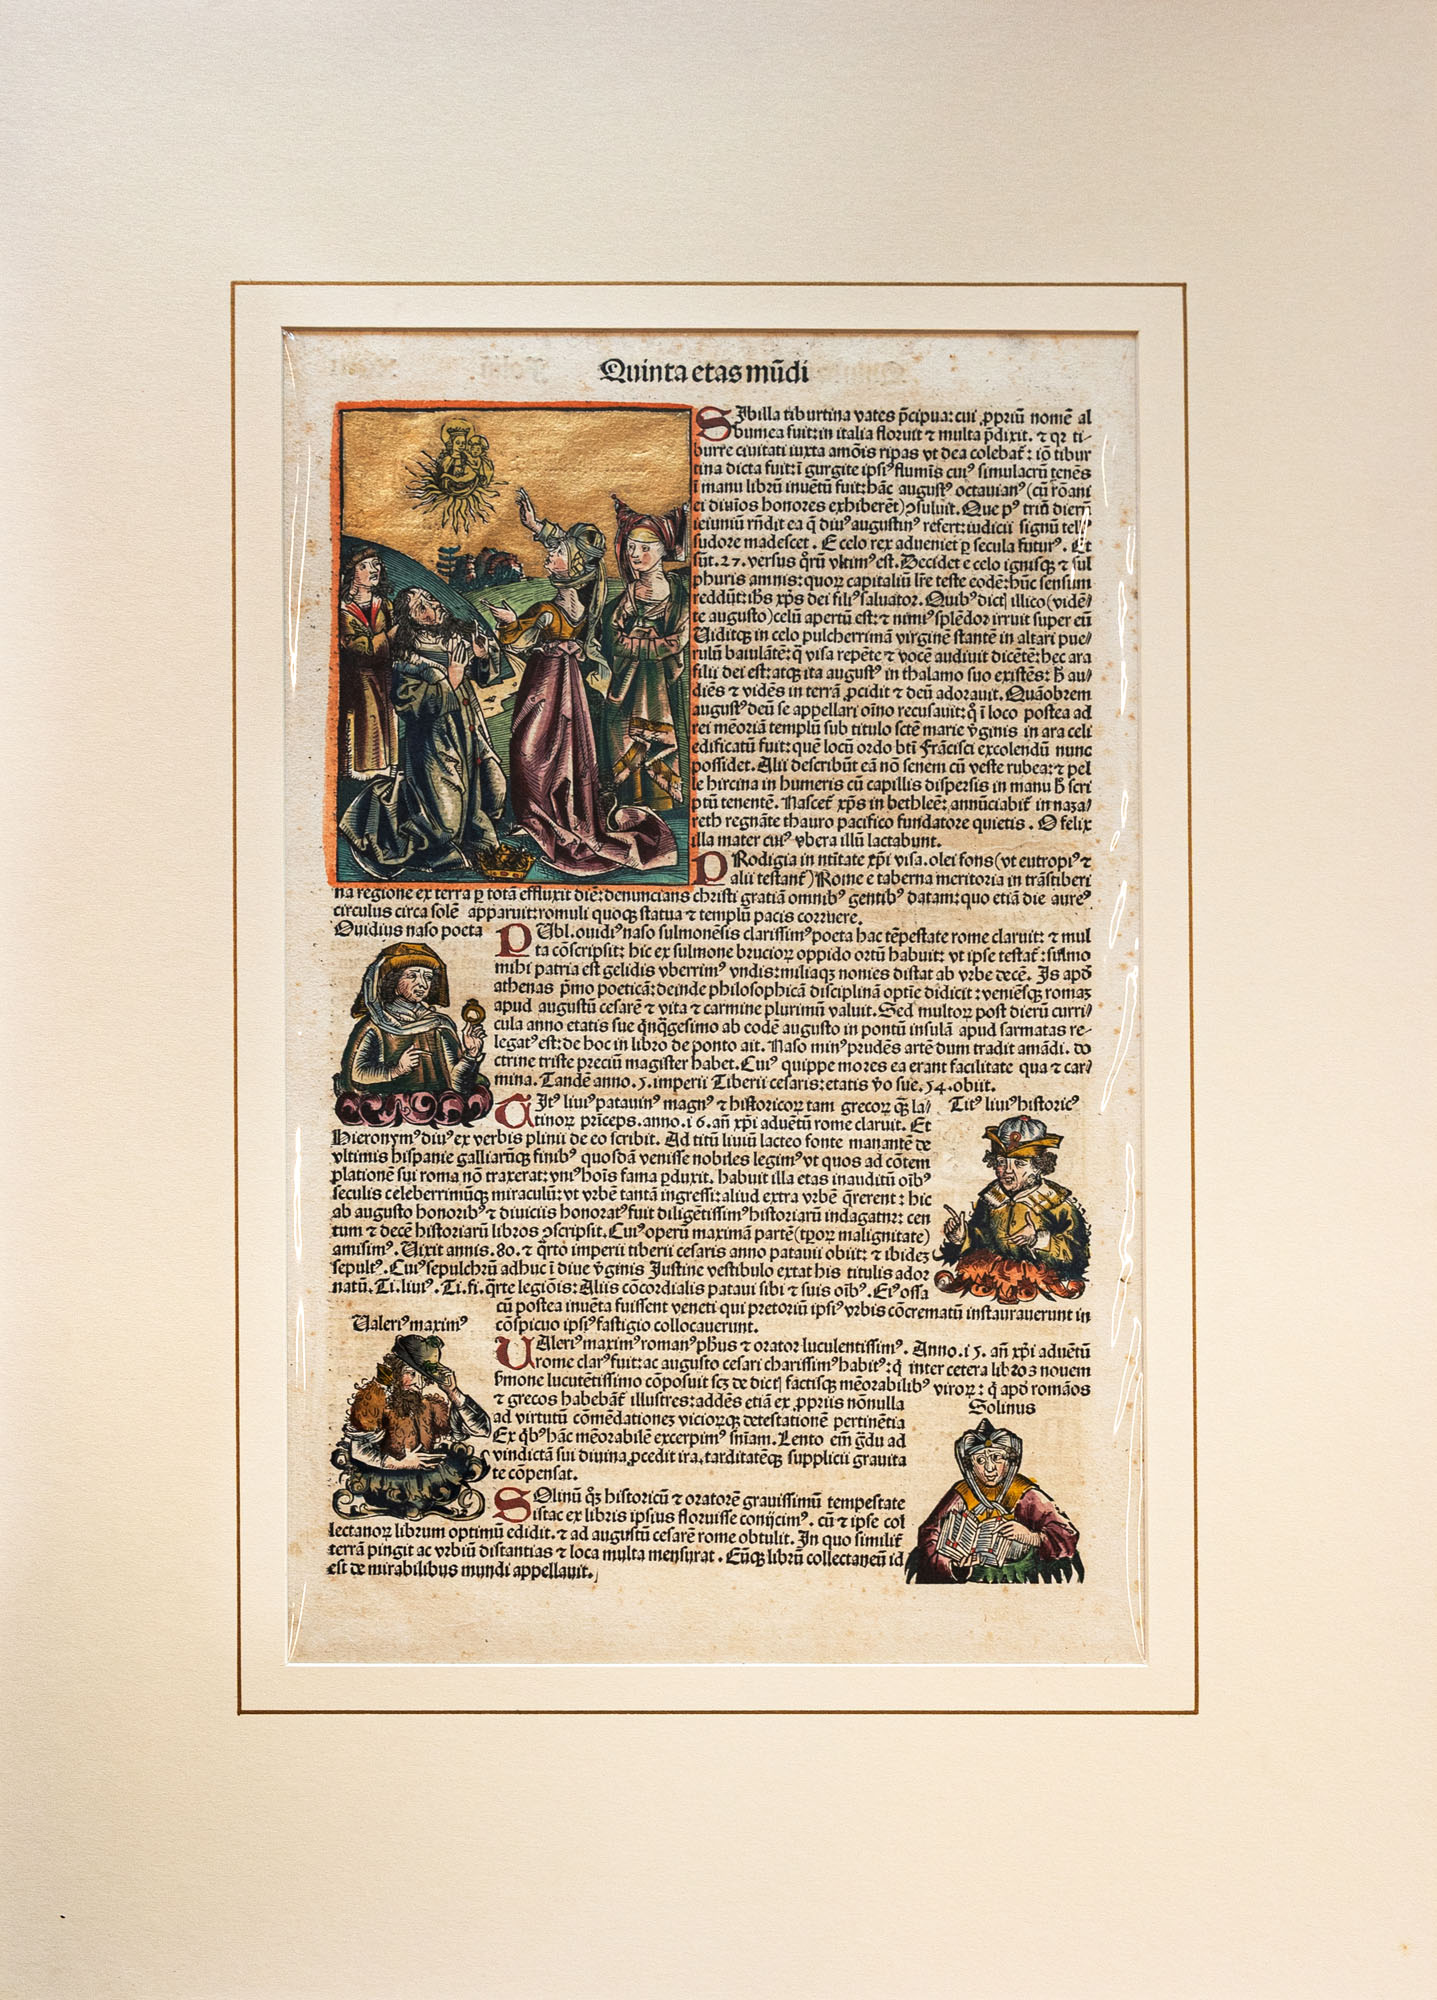 Quinta etas mūdi
Sibilla tiburtina vates p̄cipua: cui ꝓpriū nomē al
bumea fuit: in italia floruit ⁊ multa p̄dixit. ⁊ qꝛ ti-
burre ciuitati iuxta amōis ripas vt dea colebat᷑: iō tibur
tina dicta fuit: ī gurgite ipsiꝰ flumīs cuiꝰ simulacrū tenēs
ī manu librū inuētū fuit: hāc augustꝰ octauianꝰ (cū rōani
ei diuīos honores exhiberēt) ꝯsuluit. Que pꝰ triū dierū
ieiuniū rn̄dit ea q̄ diuꝰ augustinꝰ refert: iudicii signū tellꝰ
sudore madescet. E celo rex adueniet p̱ secula futurꝰ. Et
sūt .27. versus q̄rū vltimꝰ est. Decidet e celo ignisqꝫ ⁊ sul
phuris amnis: quoꝝ capitaliū lr̄e teste eodē: hūc sensum
reddūt: ih̄s xp̄s dei filiꝰ saluator. Quibꝰ dict᷒ illico (vidē-
te augusto) celū apertū est: ⁊ nimiꝰ splēdor irruit super eū
Uiditqꝫ in celo pulcherrimā virginē stantē in altari pue/
rulū baiulātē: q̄ visa repēte ⁊ vocē audiuit dicētē: hec ara
filii dei est: atqꝫ ita augustꝰ in thalamo suo existēs: h̄ au/
diēs ⁊ vidēs in terrā ꝓcidit ⁊ deū adorauit. Quāobrem
augustꝰ deū se appellari oīno recusauit: q̄ ī loco postea ad
rei mēoriā templū sub titulo sct̄e marie v̄ginis in ara celi
edificatū fuit: quē locū ordo bt̄i Frācisci excolendū nunc
possidet. Alii describūt eā nō senem cū veste rubea: ⁊ pel
le hircina in humeris cū capillis dispersis in manu h̄ scri
ptū tenentē. Nascet᷑ xp̄s in bethleē: annūciabit᷑ in naza/
reth regnāte thauro pacifico fundatore quietis. O felix
illa mater cuiꝰ vbera illū lactabunt.
PRodigia in nt̄itate xp̄i visa. olei fons (vt eutropiꝰ ⁊
alii testant᷑) Rome e taberna meritoria in trāstiberi
na regione ex terra p̱ totā effluxit diē: denuncians christi gratiā omnibꝰ gentibꝰ datam: quo etiā die aureꝰ
circulus circa solē apparuit: romuli quoqꝫ statua ⁊ templū pacis corruere.
Ouidius naso poeta
PUbl. ouidiꝰ naso sulmonēsis clarissimꝰ poeta hac tēpestate rome claruit: ⁊ mul
ta cōscripsit: hic ex sulmone brucioꝝ oppido ortū habuit: vt ipse testat᷑: sulmo
mihi patria est gelidis vberrimꝰ vndis: miliaqꝫ nonies distat ab vrbe decē. Is apd̄
athenas p̄mo poeticā: deinde philosophicā disciplinā optīe didicit: veniēsqꝫ romaꝫ
apud augustū cesarē ⁊ vita ⁊ carmine plurimū valuit. Sed multoꝝ post dierū curri/
cula anno etatis sue q̄nq̄gesimo ab eodē augusto in pontū insulā apud sarmatas re-
legatꝰ est: de hoc in libro de ponto ait. Naso minꝰ prudēs artē dum tradit amādi. do
ctrine triste preciū magister habet. Cuiꝰ quippe mores ea erant facilitate qua ⁊ car-
mina. Tandē anno .5. imperii Tiberii cesaris: etatis v̄o sue .54. obiit.
Titꝰ liuiꝰ historicꝰ
TItꝰ liuiꝰ patauinꝰ magnꝰ ⁊ historicoꝝ tam grecoꝝ q̄ꝫ la/
tinoꝝ prīceps. anno .16. an̄ xp̄i aduētū rome claruit. Et
Hieronymꝰ diuꝰ ex verbis plinii de eo scribit. Ad titū liuiū lacteo fonte manantē de
vltimis hispanie galliarūqꝫ finibꝰ quosdā venisse nobiles legimꝰ vt quos ad cōtem
plationē sui roma nō traxerat: vniꝰ hoīs fama p̱duxit. habuit illa etas inauditū oībꝰ
seculis celeberrimūqꝫ miraculū: vt vrbē tantā ingressi: aliud extra vrbē q̄rerent: hic
ab augusto honoribꝰ ⁊ diuiciis honoratꝰ fuit diligētissimꝰ historiarū indagator: cen
tum ⁊ decē historiarū libros ꝯscripsit. Cuiꝰ operū maximā partē (tꝑoꝝ malignitate)
amisimꝰ. Uixit annis .80. ⁊ q̄rto imperii tiberii cesaris anno patauii obiit: ⁊ ibideꝫ
sepultꝰ. Cuiꝰ sepulchrū adhuc ī diue v̄ginis Justine vestibulo extat his titulis ador
natū. Ti. liuiꝰ. Ti. fi. q̄rte legiōis: Aliis cōcordialis pataui sibi ⁊ suis oībꝰ. Eiꝰ ossa
cū postea inuēta fuissent veneti qui pretoriū ipsiꝰ vrbis cōcrematū instaurauerunt in
cōspicuo ipsiꝰ fastigio collocauerunt.
Ualeriꝰ maximꝰ
UAleriꝰ maximꝰ romanꝰ ph̄us ⁊ orator luculentissimꝰ. Anno .15. an̄ xp̄i aduētū
rome clarꝰ fuit: ac augusto cesari charissimꝰ habitꝰ: q̄ inter cetera libroꝫ nouem
s̄mone lucutētissimo cōposuit scꝫ de dict᷒ factisqꝫ mēorabilibꝰ viroꝝ: q̄ apd̄ romāos
⁊ grecos habebāt᷑ illustres: addēs etiā ex ꝓpriis nōnulla
ad virtutū cōmēdationeꝫ vicioruqꝫ detestationē pertinētia
Ex q̄bꝰ hāc mēorabilē excerpimꝰ sn̄iam. Lento em̄ g̈du ad
vindictā sui diuina ꝓcedit ira, tarditatēqꝫ supplicii grauita
te cōpensat.
Solinus
SOlinū q̄ꝫ historicū ⁊ oratorē grauissimū tempestate
istac ex libris ipsius floruisse conijcimꝰ. cū ⁊ ipse col
lectanoꝝ librum optimū edidit. ⁊ ad augustū cesarē rome obtulit. In quo similit᷑
terrā pingit ac vrbiū distantias ⁊ loca multa mensurat. Eūqꝫ librū collectaneū id
est de mirabilibus mundi appellauit.